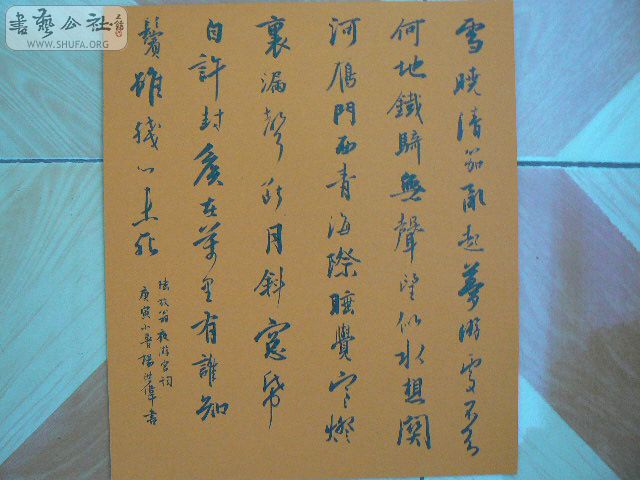 書藝公社
WWW.SHUFA.ORG
雪曉清笳亂起夢游處不知
何地鐵騎無聲望似水想關
河鴈門西青海際睡覺寒燈
裏漏聲斷月斜窓帋
自許封侯在萬里有誰知
鬢雖殘心未死
陸放翁夜游宮詞
庚寅小楊洪偉書